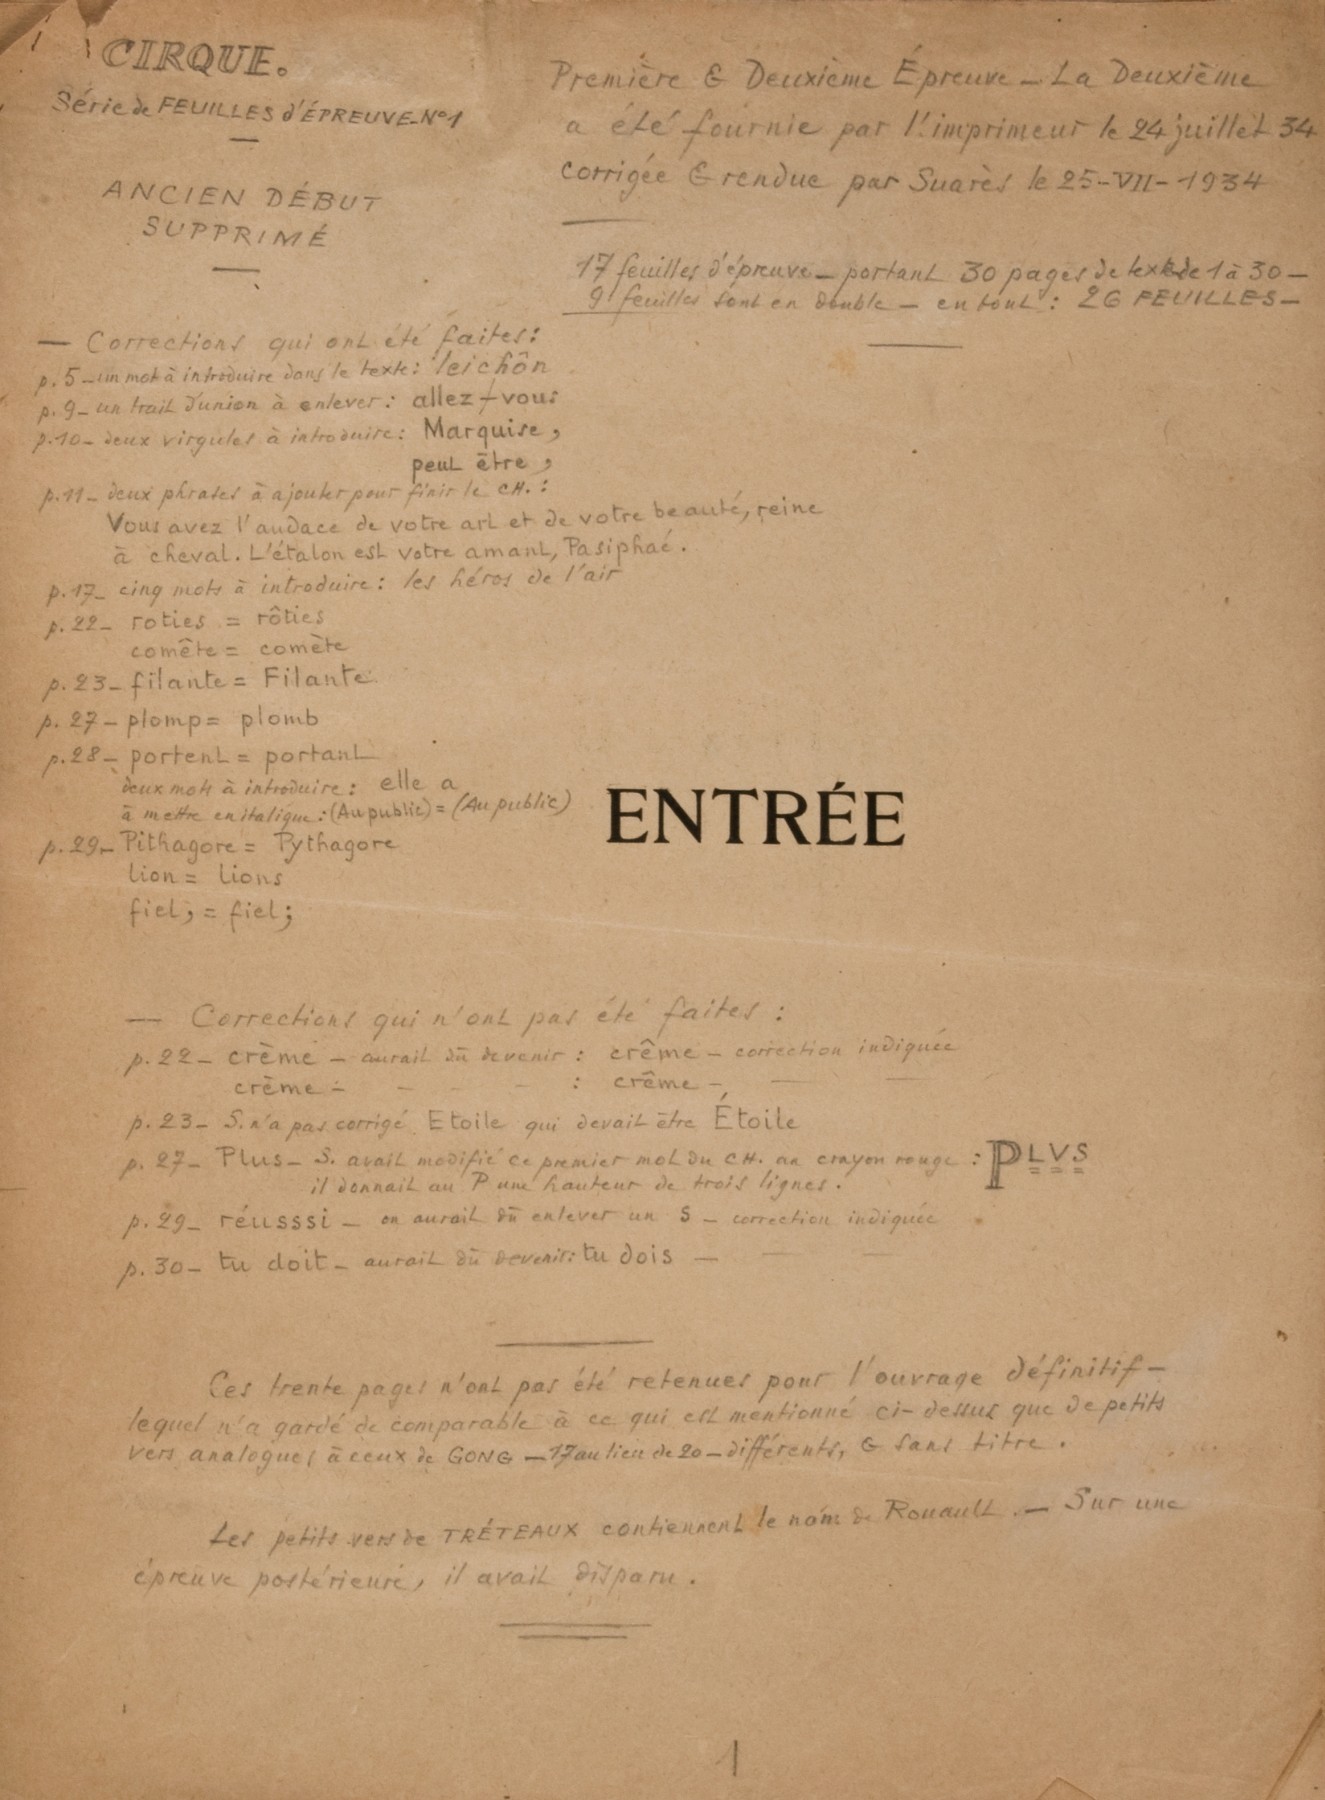 CIRQUE.
Série de FEUILLES d'ÉPREUVE - N°1
ANCIEN DÉBUT
SUPPRIMÉ
Première & Deuxième Épreuve - La Deuxième
a été fournie par l'imprimeur le 24 juillet 34
corrigée & rendue par Suarès le 25-VII-1934
17 feuilles d'épreuve - portant 30 pages de texte de 1 à 30 -
9 feuilles sont en double - en tout : 26 FEUILLES -
— Corrections qui ont été faites :
p. 5 - un mot à introduire dans le texte : leichôn
p. 9 - un trait d'union à enlever : allez-vous
p. 10 - deux virgules à introduire : Marquise,
peut être,
p. 11 - deux phrases à ajouter pour finir le CH. :
Vous avez l'audace de votre art et de votre beauté, reine
à cheval. L'étalon est votre amant, Pasiphaé.
p. 17 - cinq mots à introduire : les héros de l'air
p. 22 - roties = rôties
comête = comète
p. 23 - filante = Filante
p. 27 - plomp = plomb
p. 28 - portent = portant
deux mots à introduire : elle a
à mettre en italique : (Au public) = (Au public)
p. 29 - Pithagore = Pythagore
lion = lions
fiel, = fiel;
ENTRÉE
— Corrections qui n'ont pas été faites :
p. 22 - crème - aurait dû devenir : crême - correction indiquée
crème - - - - : crême - — —
p. 23 - S. n'a pas corrigé Etoile qui devait être Étoile
p. 27 - Plus - S. avait modifié ce premier mot du CH. au crayon rouge : PLVS
il donnait au P une hauteur de trois lignes.
p. 29 - réusssi - on aurait dû enlever un s - correction indiquée
p. 30 - tu doit - aurait dû devenir : tu dois - — —
Ces trente pages n'ont pas été retenues pour l'ouvrage définitif -
lequel n'a gardé de comparable à ce qui est mentionné ci-dessus que de petits
vers analogues à ceux de GONG - 17 au lieu de 20 - différents, & sans titre.
Les petits vers de TRÉTEAUX contiennent le nom de Rouault. - Sur une
épreuve postérieure, il avait disparu.
1